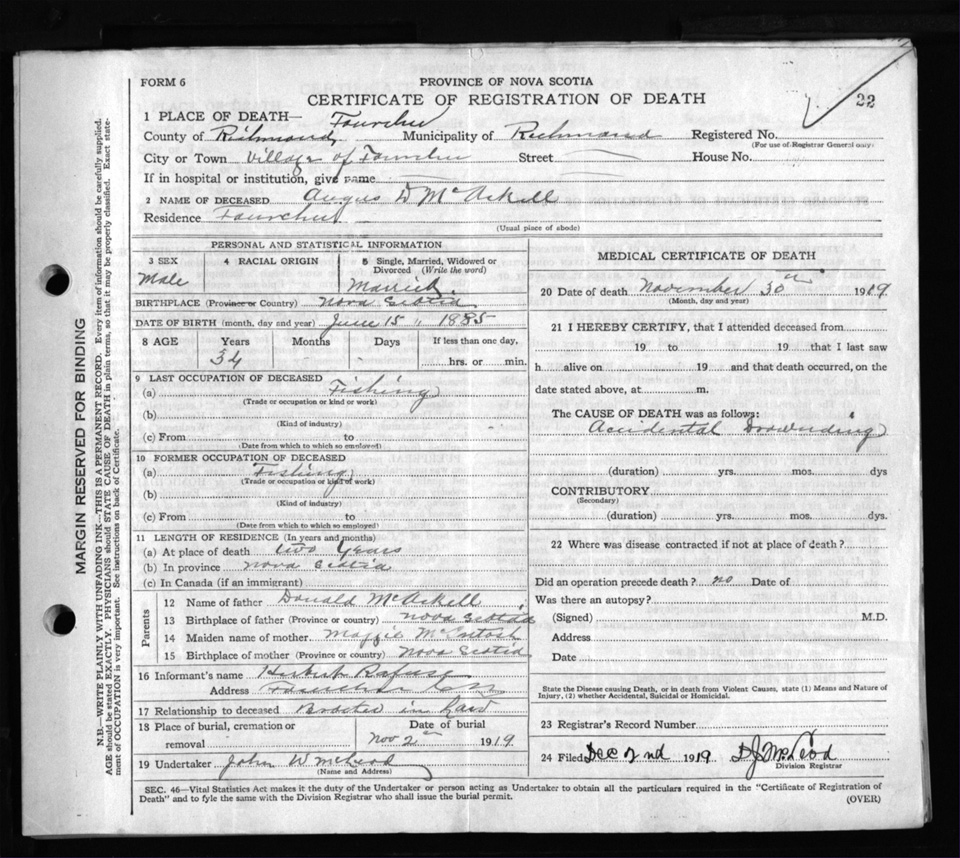 22
FORM 6
PROVINCE OF NOVA SCOTIA
CERTIFICATE OF REGISTRATION OF DEATH
1 PLACE OF DEATH— Fourchu
County of Richmond Municipality of Richmond Registered No.
(For use of Registrar General only)
City or Town Village of Fourchu Street House No.
If in hospital or institution, give name
2 NAME OF DECEASED Angus D McAskell
Residence Fourchu
(Usual place of abode)
PERSONAL AND STATISTICAL INFORMATION
3 SEX Male
4 RACIAL ORIGIN
5 Single, Married, Widowed or Divorced (Write the word)
Married
BIRTHPLACE (Province or Country) Nova Scotia
DATE OF BIRTH (month, day and year) June 15 1885
8 AGE Years Months Days If less than one day,
34 - - hrs. or min.
9 LAST OCCUPATION OF DECEASED
(a) Fishing
(Trade or occupation or kind or work)
(b)
(Kind of industry)
(c) From to
(Date from which to which so employed)
10 FORMER OCCUPATION OF DECEASED
(a) Fishing
(Trade or occupation or kind of work)
(b)
(Kind of industry)
(c) From to
(Date from which to which so employed)
11 LENGTH OF RESIDENCE (In years and months)
(a) At place of death two years
(b) In province Nova Scotia
(c) In Canada (if an immigrant)
Parents
12 Name of father Donald McAskell
13 Birthplace of father (Province or country) Nova Scotia
14 Maiden name of mother Maggie McIntosh
15 Birthplace of mother (Province or country) Nova Scotia
16 Informant's name Herbert
Address Fourchu C B
17 Relationship to deceased Brother in Law
18 Place of burial, cremation or removal
Date of burial
Nov 2nd 1919.
19 Undertaker John W McLeod
(Name and Address)
MEDICAL CERTIFICATE OF DEATH
20 Date of death November 30th 1919.
(Month, day and year)
21 I HEREBY CERTIFY, that I attended deceased from
19 to 19 that I last saw
h alive on 19 and that death occurred, on the
date stated above, at m.
The CAUSE OF DEATH was as follows:
Accidental Drownding
(duration) yrs. mos. dys
CONTRIBUTORY
(Secondary)
(duration) yrs. mos. dys.
22 Where was disease contracted if not at place of death?
Did an operation precede death? no Date of
Was there an autopsy?
(Signed) M.D.
Address
Date
State the Disease causing Death, or in death from Violent Causes, state (1) Means and Nature of
Injury, (2) whether Accidental, Suicidal or Homicidal.
23 Registrar's Record Number
24 Filed Dec 2nd 1919 D J McLeod
Division Registrar
SEC. 46—Vital Statistics Act makes it the duty of the Undertaker or person acting as Undertaker to obtain all the particulars required in the "Certificate of Registration of
Death" and to fyle the same with the Division Registrar who shall issue the burial permit.
(OVER)
MARGIN RESERVED FOR BINDING
N.B.—WRITE PLAINLY WITH UNFADING INK—THIS IS A PERMANENT RECORD. Every item of information should be carefully supplied.
AGE should be stated EXACTLY. PHYSICIANS should STATE CAUSE OF DEATH in plain terms, so that it may be properly classified. Exact state-
ment of OCCUPATION is very important. See instructions on back of Certificate.